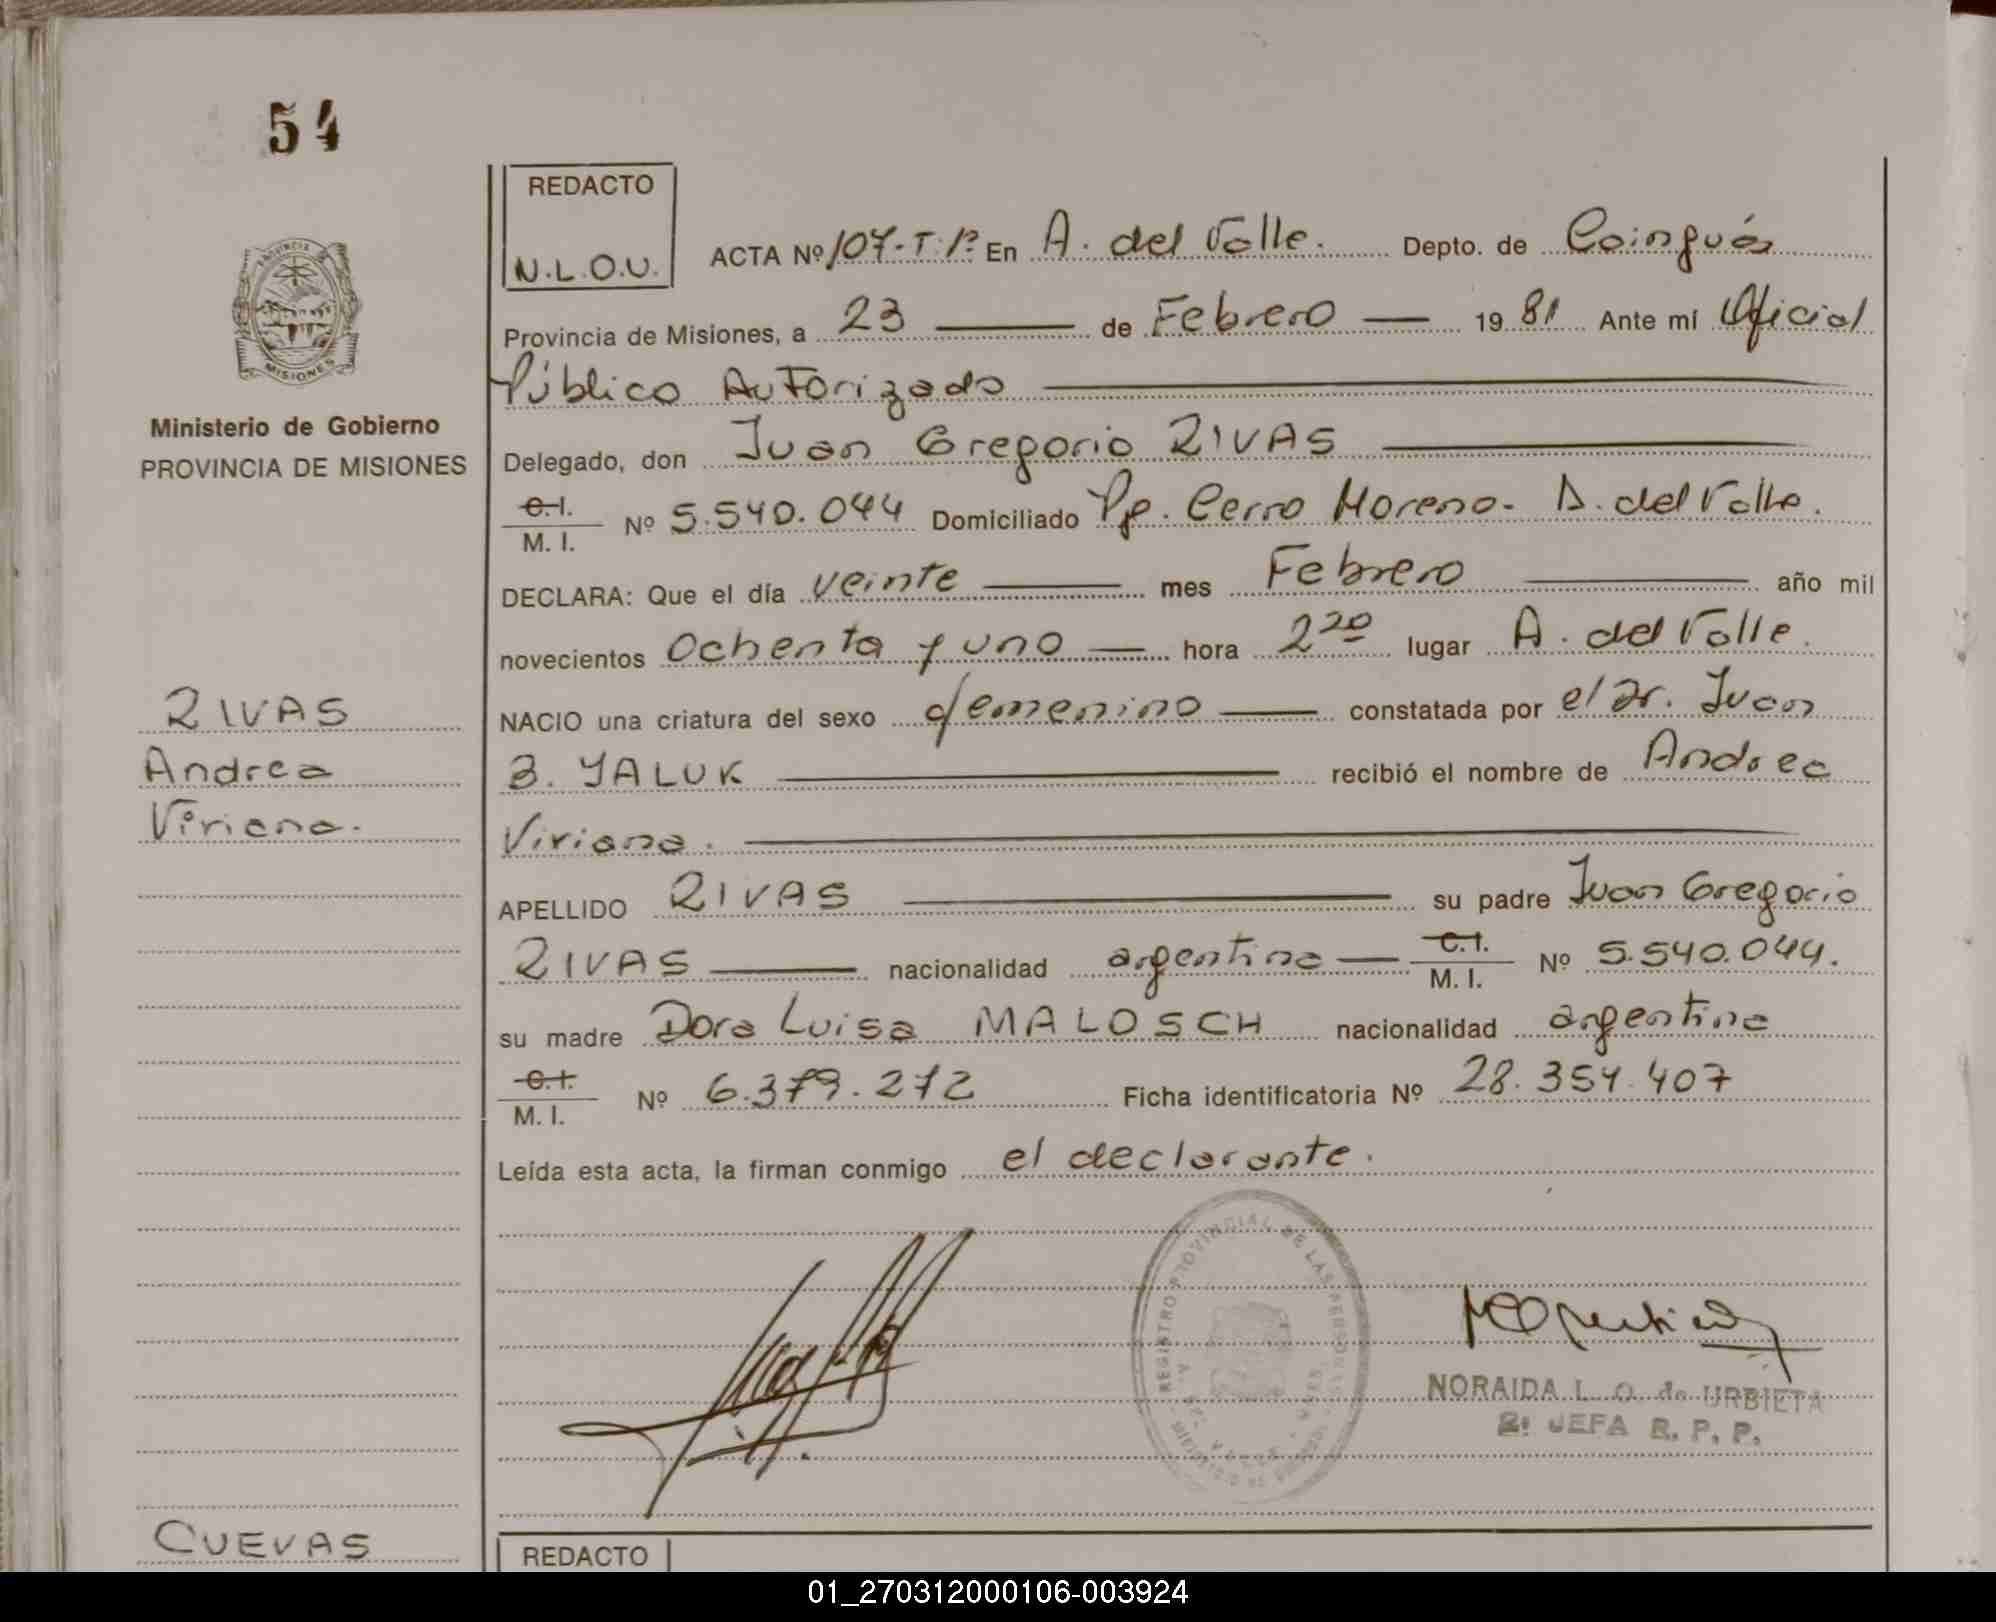 54
REDACTO
N.L.O.U.
ACTA Nº 107-T:1º En A. del Valle. Depto. de Cainguás
Provincia de Misiones, a 23 de Febrero 1981 Ante mí Oficial
Público Autorizado
Delegado, don Juan Gregorio RIVAS
C.I. M.I. Nº 5.540.044 Domiciliado Pje. Cerro Moreno - A. del Valle.
DECLARA: Que el día veinte mes Febrero año mil
novecientos ochenta y uno hora 2 20 lugar A. del Valle.
NACIO una criatura del sexo femenino constatada por el Dr. Juan
B. YALUK recibió el nombre de Andrea
Viviana.
APELLIDO RIVAS su padre Juan Gregorio
RIVAS nacionalidad argentina C.I. M.I. Nº 5.540.044.
su madre Dora Luisa MALOSCH nacionalidad argentina
C.I. M.I. Nº 6.379.272 Ficha identificatoria Nº 28.354.407
Leída esta acta, la firman conmigo el declarante.
PROVINCIA
MISIONES
Ministerio de Gobierno
PROVINCIA DE MISIONES
RIVAS
Andrea
Viviana.
REGISTRO PROVINCIAL DE LAS PERSONAS
NORAIDA L. O. de URBIETA
2ª JEFA R. P. P.
CUEVAS
REDACTO
01_270312000106-003924